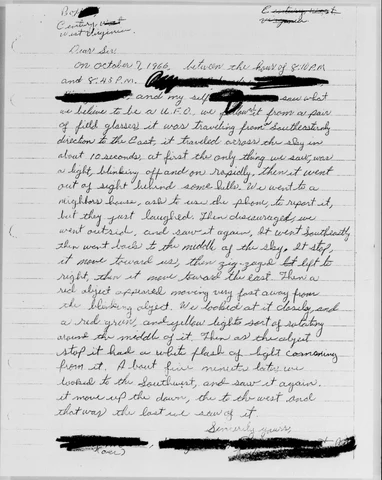 Box
Century West
West Virginia
Century West
Virginia
Dear Sir
On October 7, 1966, between the hour of 8:10 P.M.
and 8:45 P.M.
and my self saw what
we believe to be a U.F.O. we it from a pair
of field glasses it was traveling from Southeasternly
direction to the East, it traveled across the sky in
about 10 seconds, at first the only thing we saw, was
a light, blinking off and on rapidly, then it went
out of sight behind some hills. We went to a
nighbors house, ask to use the phone, to report it,
but they just laughed. Then discouraged we
went outside, and saw it again, It went Southeastly
then went back to the middle of the sky. It stop,
it move toward us, then zig-zaged left to
right, then it move toward the east. Then a
red object appeared moving very fast away from
the blinking object. We looked at it closely, and
a red green, and yellow lights sort of rotating
around the middle of it. Then as the object
stop it had a white flash of light comening
from it. A bout five minute late we
looked to the Southwest, and saw it again.
it move up the down, the to the west and
that was the last we saw of it.
Sincerly yours,